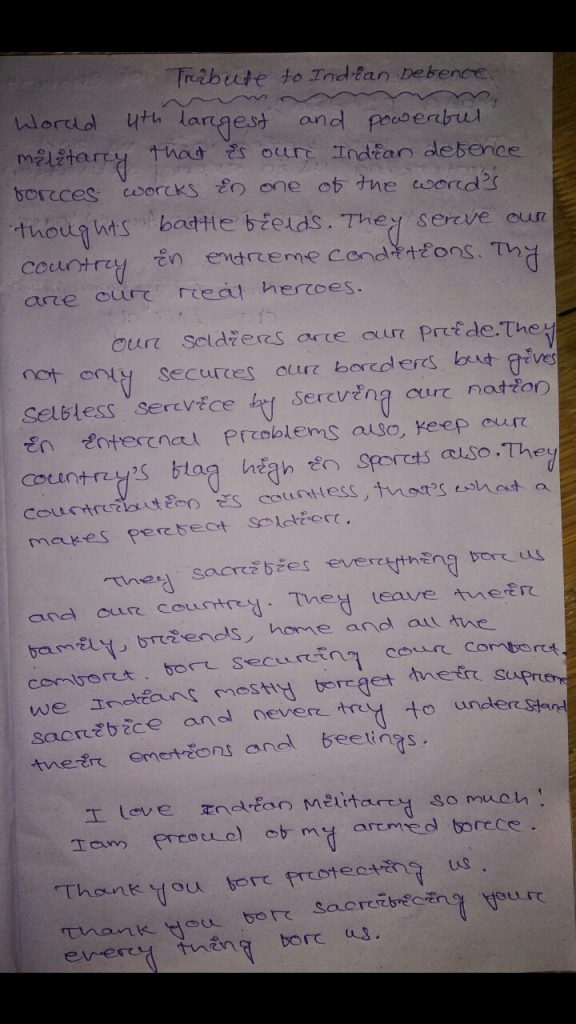 Tribute to Indian Defence
World 4th largest and powerful
military that is our Indian defence
forces works in one of the world's
thoughts battle fields. They serve our
country in extreme conditions. Thy
are our real heroes.
our soldiers are our pride. They
not only secures our borders but gives
selfless service by serving our nation
in internal problems also, keep our
country's flag high in sports also. They
countribution is countless, that's what a
makes perfect soldier.
They sacrifies everything for us
and our country. They leave their
family, friends, home and all the
comfort. for securing cour comfort.
we Indians mostly forget their supreme
sacrifice and never try to understand
their emotions and feelings.
I love Indian Military so much!
I am proud of my armed force.
Thank you for protecting us.
Thank you for sacrificing your
every thing for us.